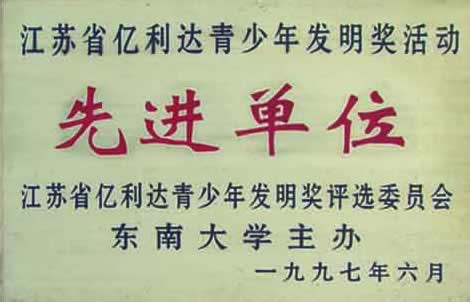 江苏省亿利达青少年发明奖活动
先进单位
江苏省亿利达青少年发明奖评选委员会
东南大学主办
一九九七年六月